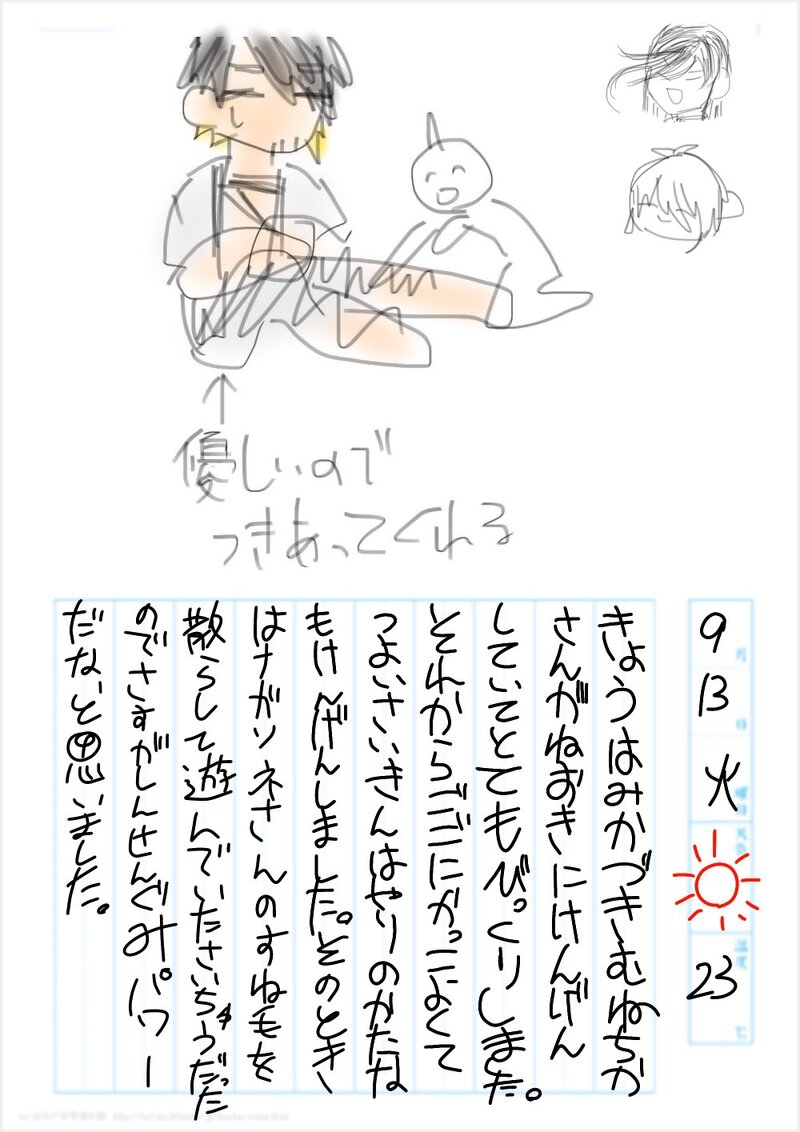 優しいので
つきあってくれる
9月
13日
火曜日
23
きょうはみかづきむねちか
さんがねおきにけんげん
していてとてもびっくりしました。
それからごごにかっこよくて
つよいさいきんはやりのかたな
もけんげんしました。そのとき
はナガソネさんのすね毛を
散らして遊んでいたさいちゅうだった
のでさすがしんせんぐみパワー
だなぁと思いました。